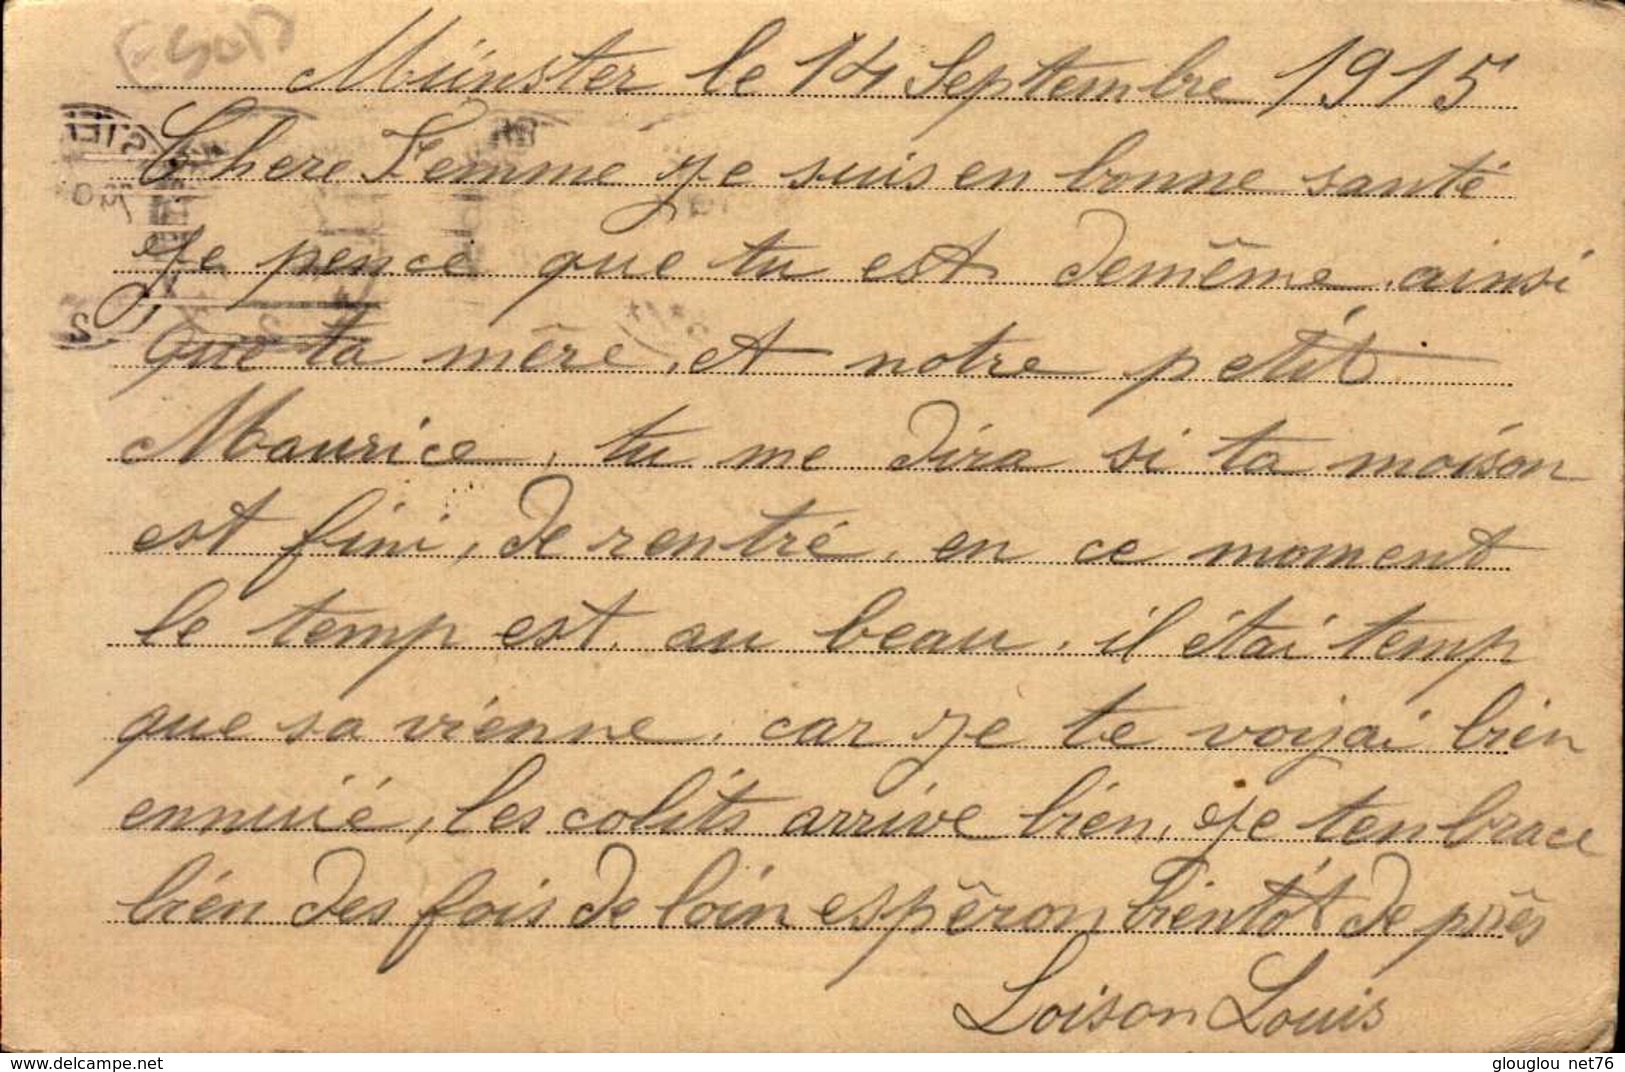 Münster le 14 Septembre 1915
Chere Femme Je suis en bonne santé
Je pence que tu est demême, ainsi
que ta mêre, et notre petit
Maurice, tu me dira si ta moison
est fini, de rentré, en ce moment
le temp est au beau, il étai temp
que sa vienne, car Je te voyai bien
ennuié, les colits arrive bien, Je tenbrace
bien des fois de loin espêron bientôt de près
Loison Louis
© www.delcampe.net
glouglou net76